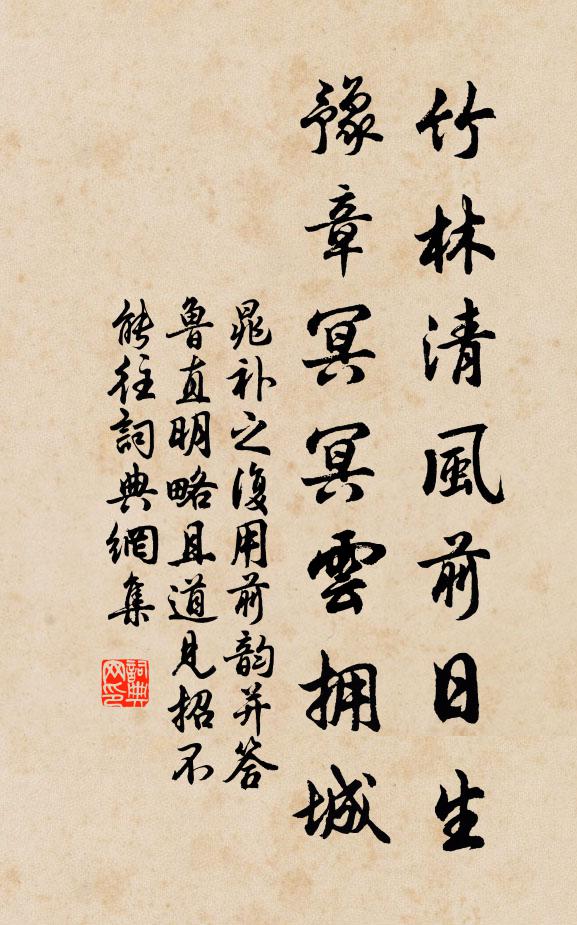 竹林清風前日生
豫章冥冥雲拥城
晁补之復用前韵并答
鲁直明略且道见招不
能往詞典網集
詞典
网印